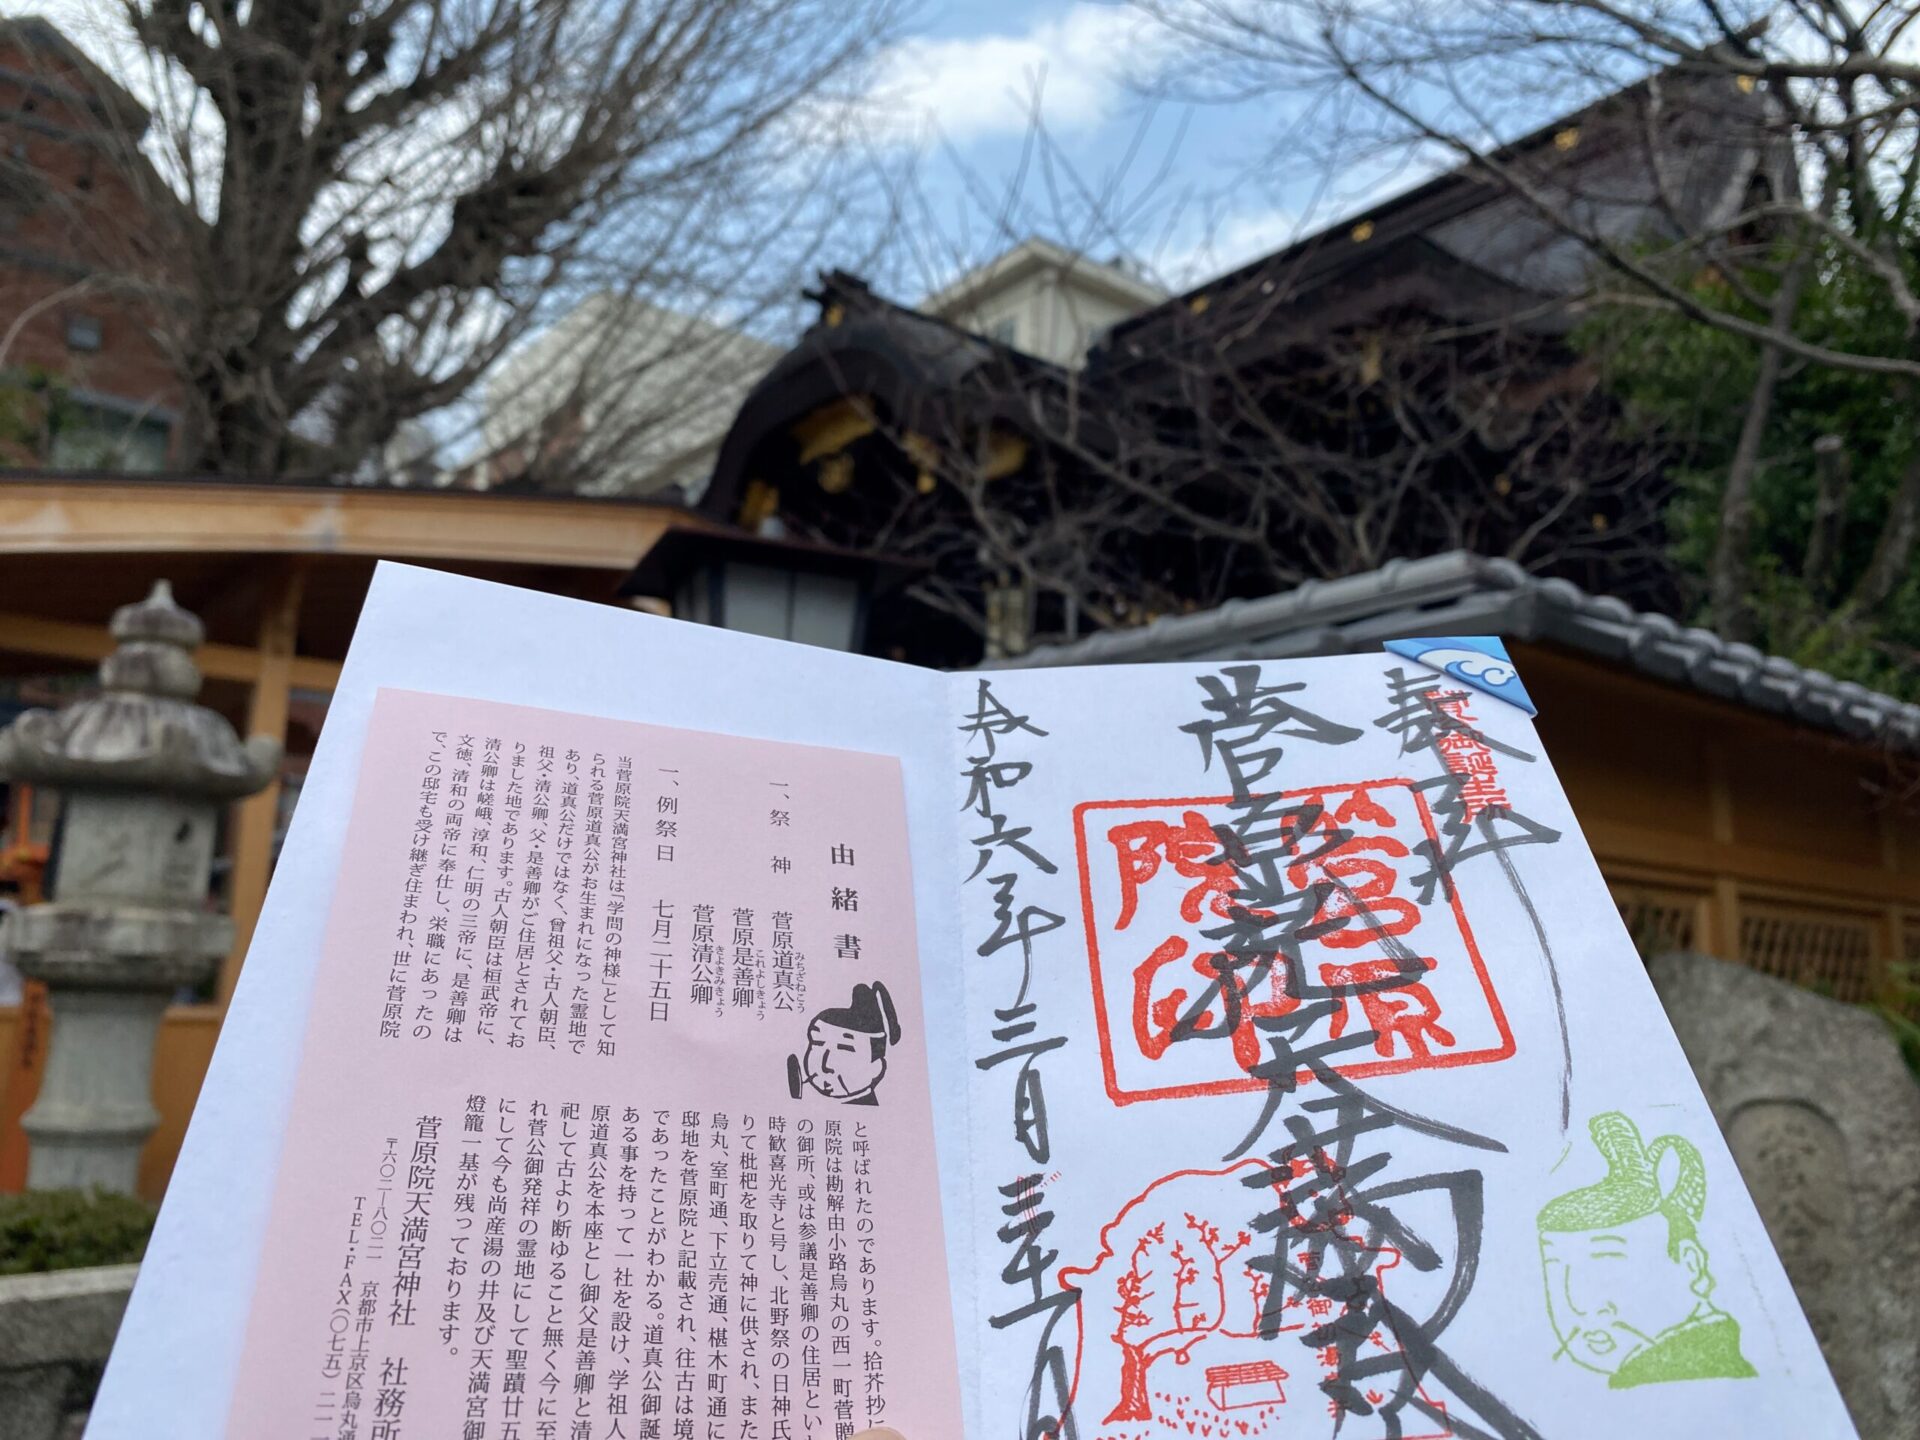 奉拝
菅公御誕生所
菅原院天満宮
菅原院印
令和六年三月
由緒書
一、祭　神　菅原道真公
みちざねこう
菅原是善卿
これよしきょう
菅原清公卿
きよきみきょう
一、例祭日　七月二十五日
当菅原院天満宮神社は「学問の神様」として知
られる菅原道真公がお生まれになった霊地で
あり、道真公だけではなく、曾祖父・古人朝臣、
祖父・清公卿、父・是善卿がご住居とされてお
りました地であります。古人朝臣は桓武帝に、
清公卿は嵯峨、淳和、仁明の三帝に、是善卿は
文徳、清和の両帝に奉仕し、栄職にあったの
で、この邸宅も受け継ぎ住まわれ、世に菅原院
と呼ばれたのであります。拾芥抄に
原院は勘解由小路烏丸の西一町菅贈
の御所、或は参議是善卿の住居とい
時歓喜光寺と号し、北野祭の日神氏
りて枇杷を取りて神に供され、また
烏丸、室町通、下立売通、椹木町通に
邸地を菅原院と記載され、往古は境
であったことがわかる。道真公御誕
ある事を持って一社を設け、学祖人
原道真公を本座とし御父是善卿と清
祀して古より断ゆること無く今に至
れ菅公御発祥の霊地にして聖蹟廿五
にして今も尚産湯の井及び天満宮御
燈籠一基が残っております。
菅原院天満宮神社　社務所
〒六〇二-八〇二一　京都市上京区烏丸通
TEL・FAX(〇七五)二一一